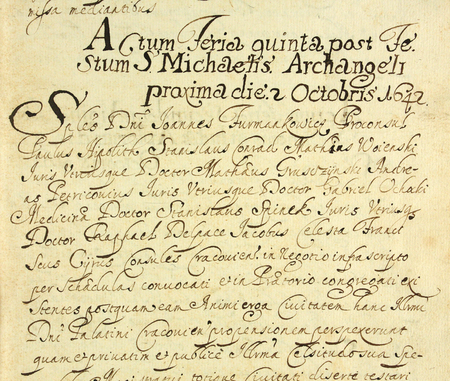 nissa mediantibus
Actum Feria quinta post Fe
stum S. Michaelis Archangeli
proxima die 2 Octobris 1642.
Sples Dni Joannes Furmankowicz Proconsul
Paulus Hipolith Stanislaus Conrad Mathias Woienski
Juris Vtriusque Doctor Mathæus Gruszczynski Andre-
as Petricouius Juris Vtriusque Doctor Gabriel Ochocki
Medicinæ Doctor Stanislaus Spinek Juris Vtriusq
Doctor Raphael Delpace Jacobus Celesta Franci
scus Cyrus Consules Cracouien in Negotio infrascripto
per Schædulas conuocati et in Prætorio congregati exi
stentes postquam eam Animi erga Ciuitatem hanc Illrmi
Dni Palatini Cracouien propensionem perspexerunt
quam et priuatim et publice Illrma Celsitudo sua spe-
totique Ciuitati diserte testari